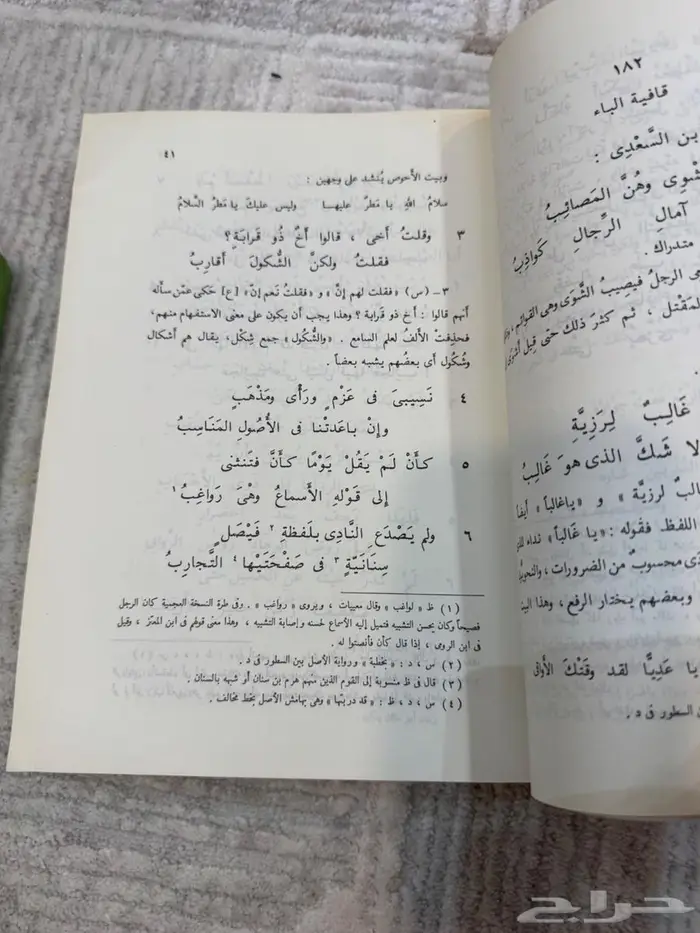 ١٨٢
قافية الباء
بن السَّعْدِى :
شَّوِى وهُنَّ المَصائِبُ
آمالِ الرِّجالِ كَواذِبُ
متدراك .
مى الرجلُ فيصِيبُ الشَّوَى وهى القوائم ،
المَقْتل ، ثم كثرَ ذلك حتى قِيل أشْوَى
غَالِبٌ لِرَزِيَّةِ
لا شَكَّ الذى هوَ غَالِبُ
البٌ لرزيَّة » و « ياغالباً » أيضا
اللفظ. فقوله : « يا غَالباً » نداء
ذى محسوبٌ من الضرورات ،
وبعضهم يختار الرفع ، وهذا
يا عَدِيًّا لقد وقَتْكَ الأَواقى
ن السطور فى د .
٤١
وبيت الأحوص يُنشد على وجهين :
سلامُ اللهِ يا مَطَرُ عليها وليس عليكَ يا مَطَرُ السَّلامُ
٣ وقلتُ أخى ، قالوا أخٌ ذو قَرابَةٍ ؟
فقلتُ ولكنَّ الشُّكولَ أَقارِبُ
٣ – (س) « فقلت لهم إنّ » و « فقلتُ نَعم إنّ » [ع] حَكى عمّن سأله
أنهم قالوا : أخ ذو قَرابة ؟ وهذا يجب أن يكون على معنى الاستفهام منهم,
فحذفت الألفُ لعلم السامع . «والشُّكول» جمع شِكْل ، يقال هم أشكال
وشُكول أى بعضُهم يشبه بعضاً .
٤ نَسِيبىَ فى عَزْمٍ ورَأْىٍ ومَذْهَبٍ
وإنْ باعَدتْنا فى الأُصُولِ المَناسِبُ
٥ كأَنْ لَمْ يَقُلْ يَوْمًا كأَنَّ فتَنثنى
إلى قَوْلِهِ الأَسماعُ وهْىَ رَواغِبُ ١
٦ ولم يَصْدَعِ النَّادِى بلَفظةِ ٢ فَيْصَلٍ
سِنَانيَّةٍ ٣ فى صَفْحَتَيْها ٤ التَّجارِبُ
(١) ظ « لواغب » وقال معييات ، ويروى « رواغب » . وفى طرة النسخة العجمية كان الرجل
فصيحاً وكان يحسن التشبيه فتميل إليه الأسماع لحسنه وإصابة التشبيه ، وهذا معنى قولهم فى ابن المعتز ، وقيل
فى ابن الرومى ، إذا قال كأن فأنصتوا له .
(٢) س ، د : « بخطبة » ورواية الأصل بين السطور فى د .
(٣) قال فى ظ منسوبة إلى القوم الذين منهم هرم بن سنان أو شبهه بالسنان .
(٤) س ، د ، ظ : « قد دربتها » وهى بهامش الأصل بخط مخالف .
حراج